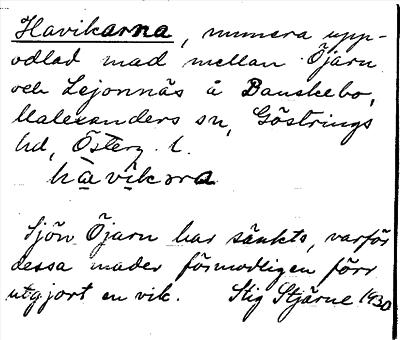 Havikarna, numera upp-
odlad mad mellan Öjarn
och Lejonnäs å Banskebo,
Malexanders sn, Göstrings
hd, Österg. l.
hàvìkɔrɑ
Sjön Öjarn har sänkts, varför
dessa mader förmodligen förr
utgjort en vik. Stig Stjärne 1930